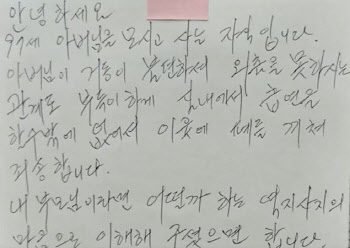 안녕하세요
97세 아버님을 모시고 사는 자식입니다.
아버님이 거동이 불편하셔 외출을 못하시는
관계로 부득이하게 실내에서 흡연을
할수밖에 없어서 이웃에 폐를 끼쳐
죄송합니다.
내 부모님이라면 어떨까 하는 역지사지의
마음으로 이해해 주셨으면 합니다.